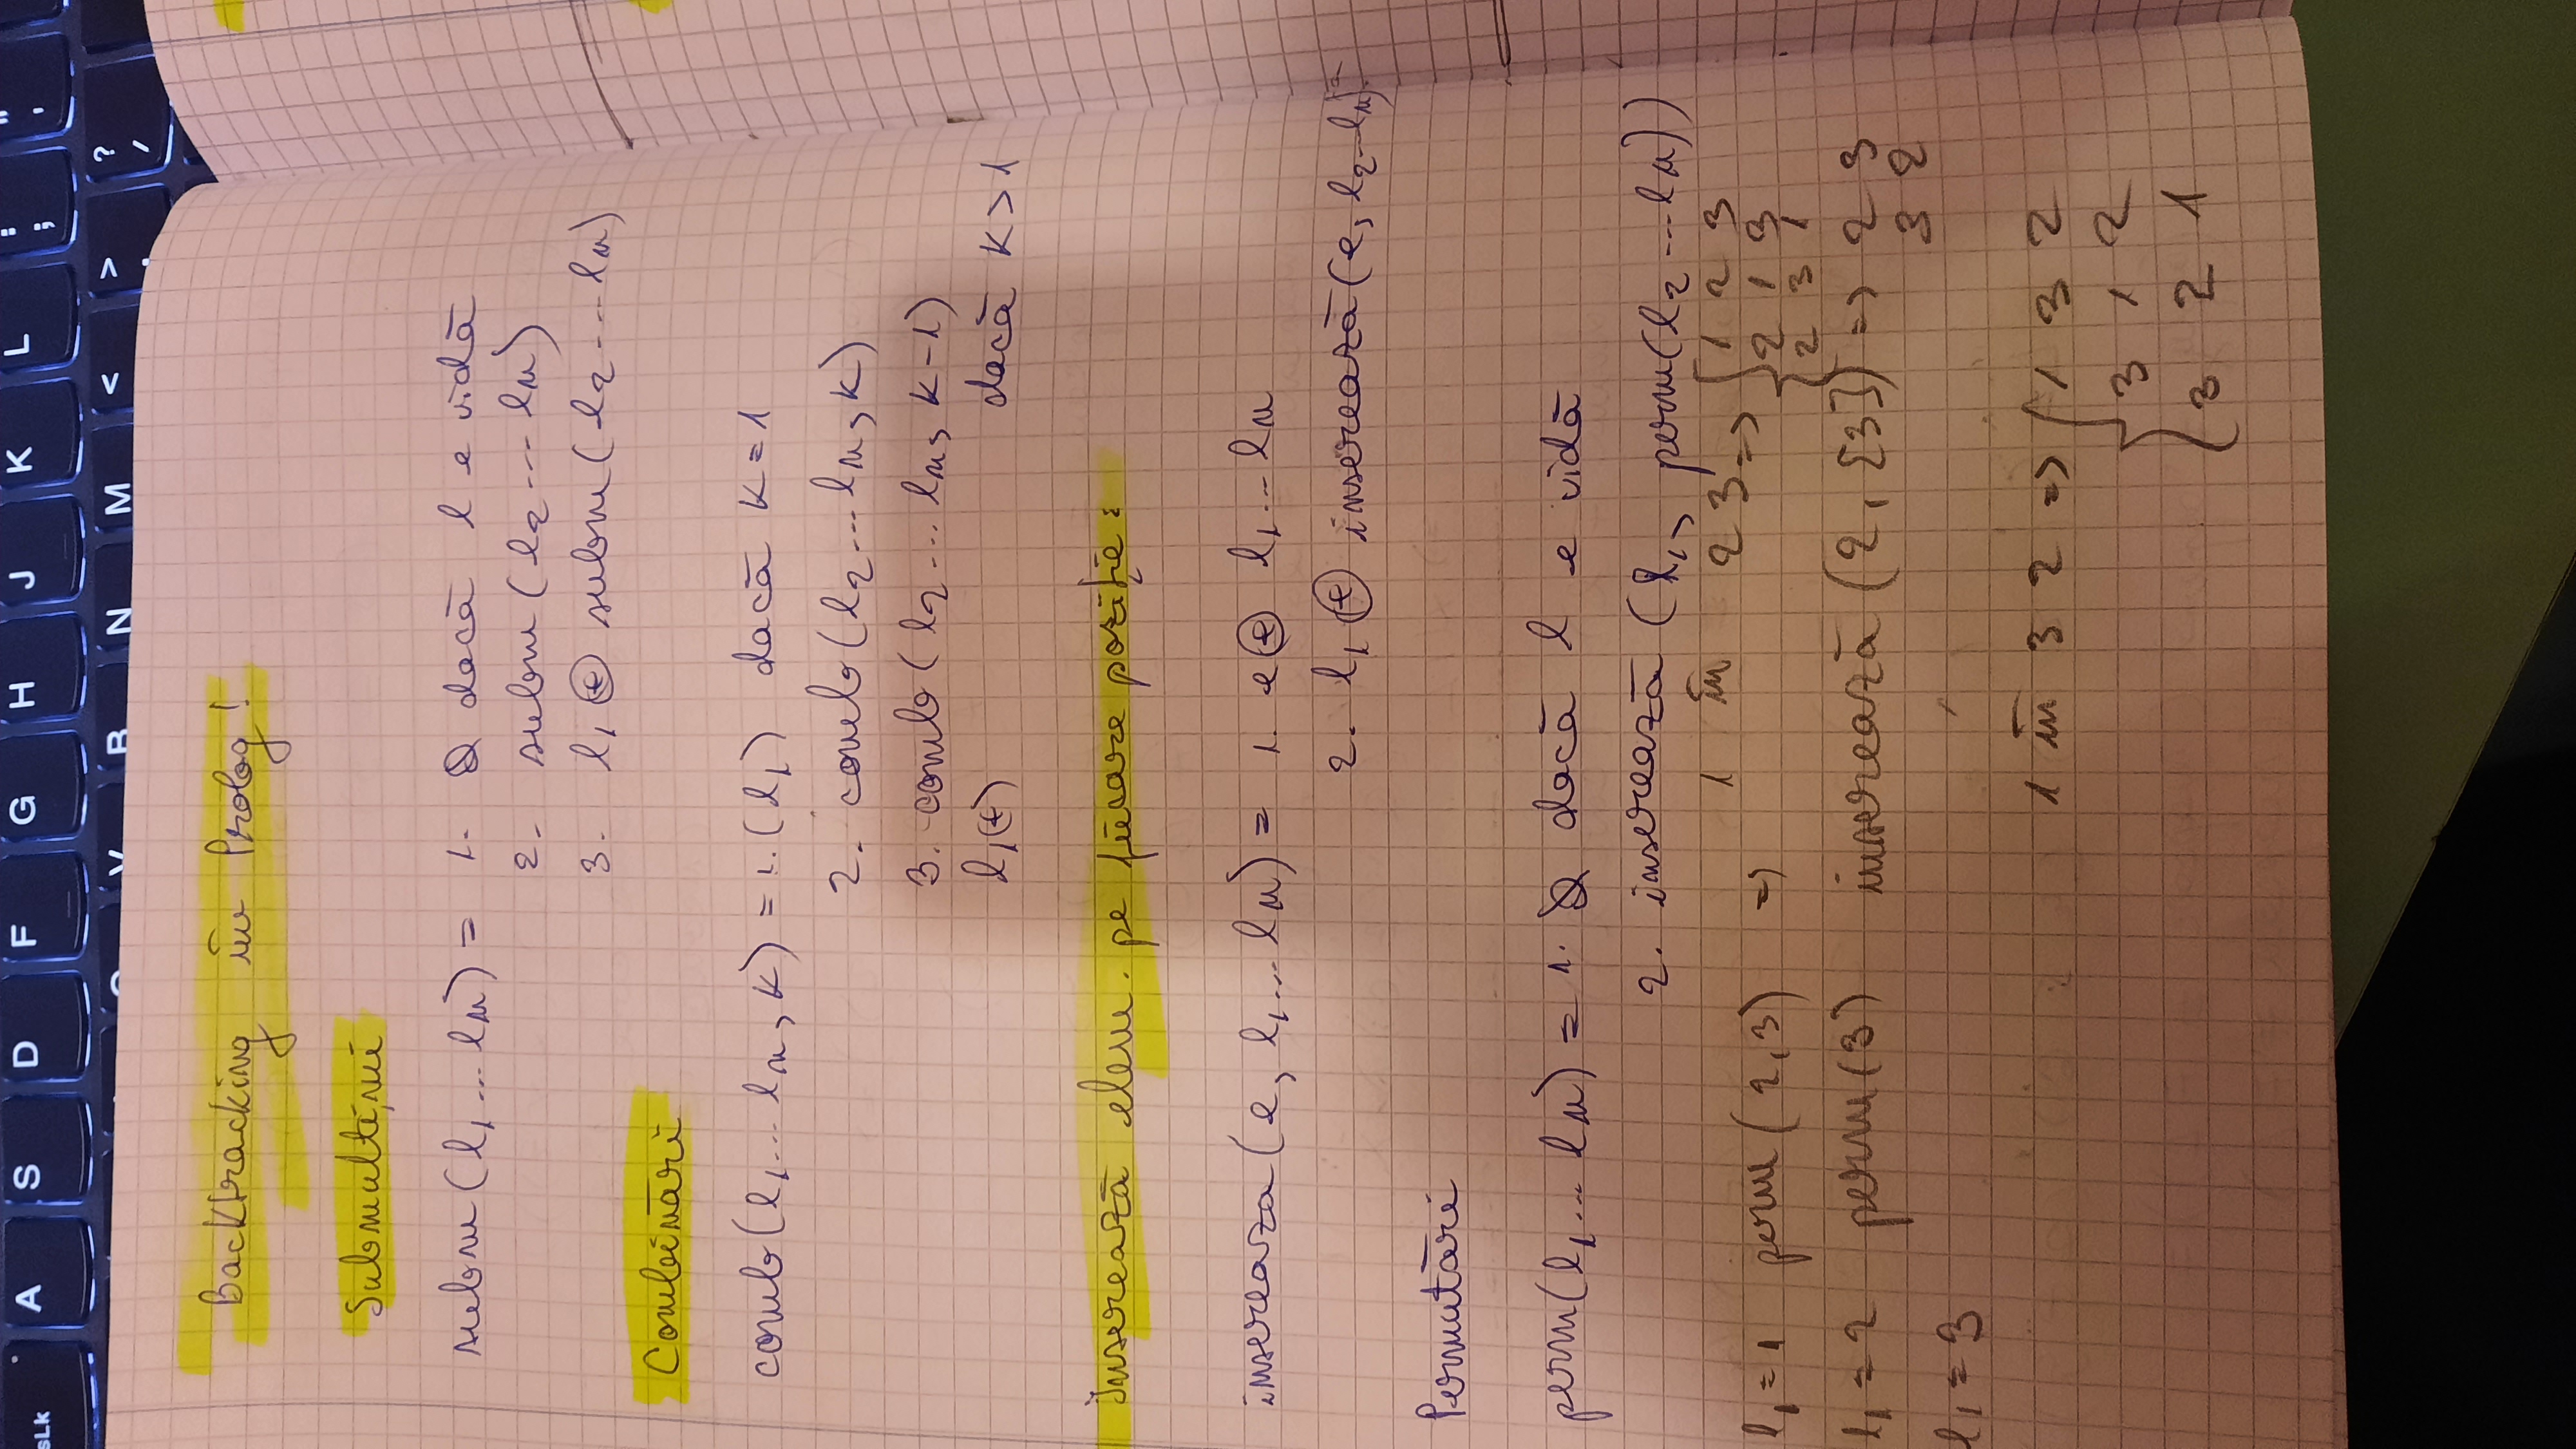 sLk A S D F G H J K L : ; " '
C V B N M < > ? /
Backtracking în Prolog!
Submulțimi
subm(l₁...lₙ) = 1. ∅ dacă l e vidă
2. subm(l₂...lₙ)
3. l₁ ⊕ subm(l₂...lₙ)
Combinări
comb(l₁...lₙ, k) = 1. (l₁) dacă k=1
2. comb(l₂...lₙ, k)
3. comb(l₂...lₙ, k-1)
l₁ ⊕ dacă k>1
Inserează elem. pe fiecare poziție:
insereaza(e, l₁...lₙ) = 1. e ⊕ l₁...lₙ
2. l₁ ⊕ inserează(e, l₂...lₙ)
Permutări
perm(l₁...lₙ) = 1. ∅ dacă l e vidă
2. inserează (l₁, perm(l₂...lₙ))
1 în 2 3 => { 1 2 3
l₁=1 perm(2,3) => 2 1 3
2 3 1
l₁=2 perm(3) inserează (2, [3]) => 2 3
3 2
l₁=3
1 în 3 2 => { 1 3 2
3 1 2
3 2 1